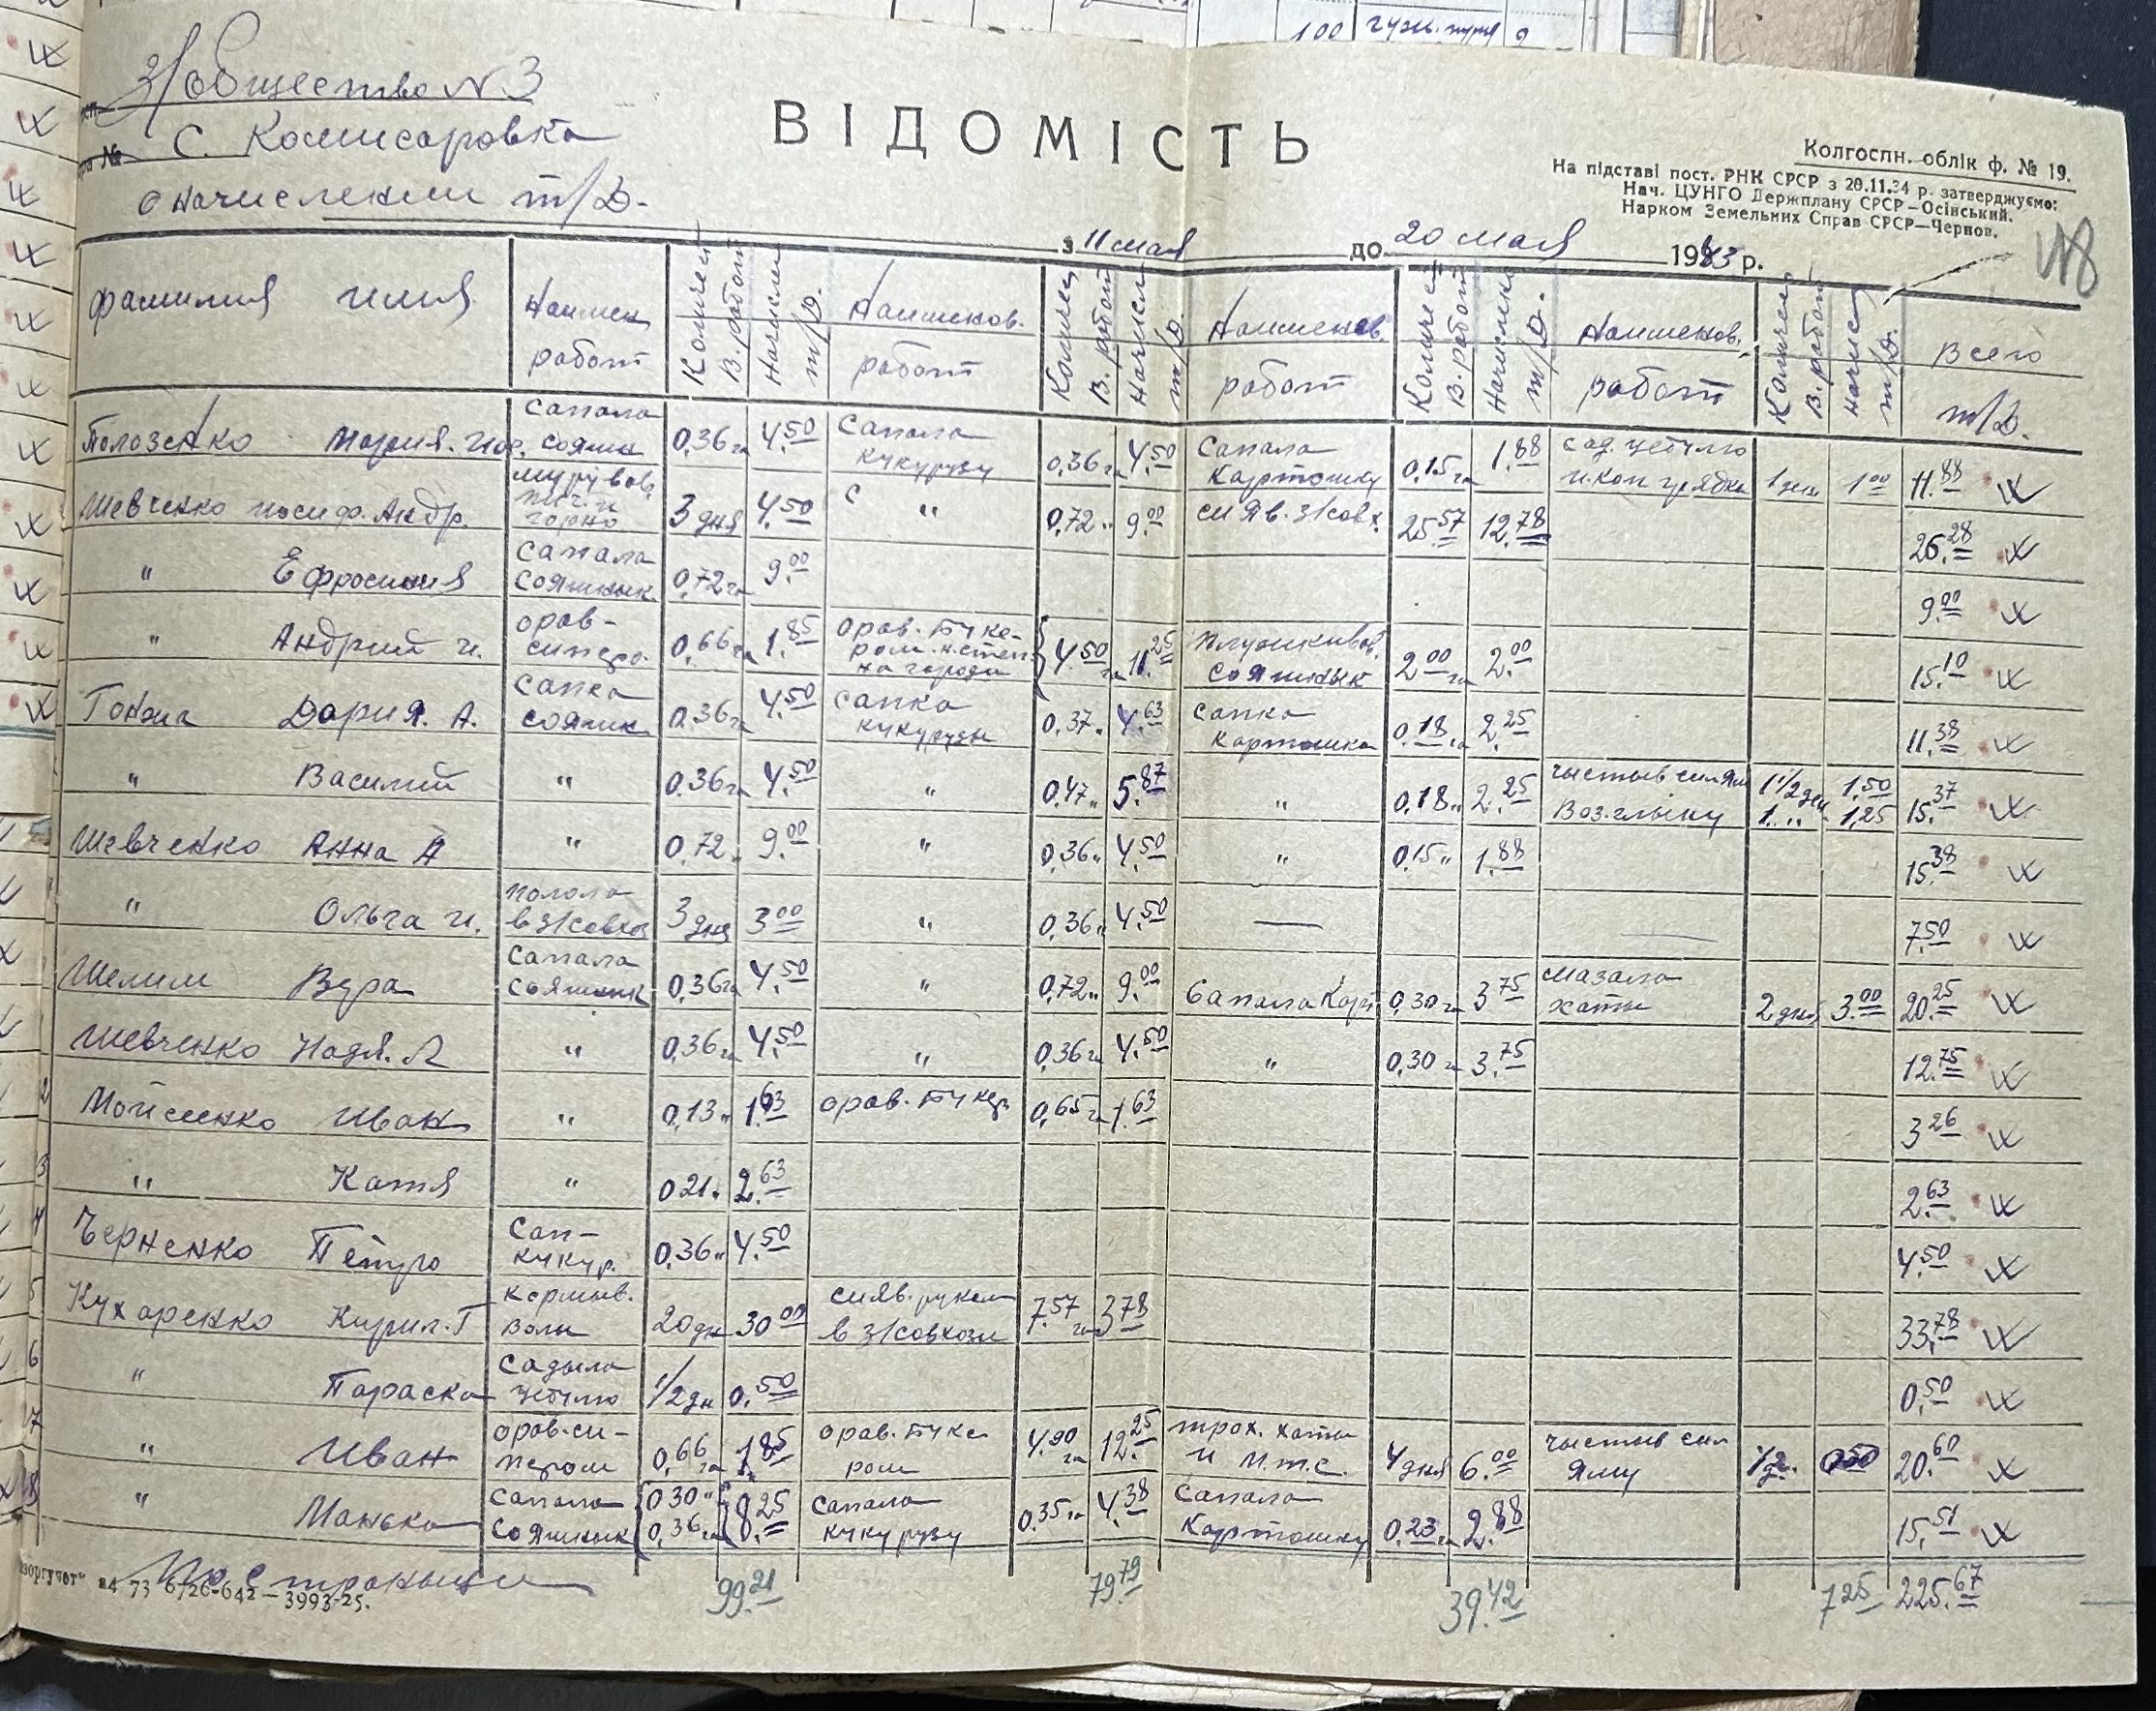 З/общество N 3
С. Комисаровка
о начислении т/д.
ВІДОМІСТЬ
Колгоспн. облік ф. № 19.
На підставі пост. РНК СРСР з 20.11.34 р. затверджуємо:
Нач. ЦУНГО Держплану СРСР—Осінський.
Нарком Земельних Справ СРСР—Чернов.
з 11 мая до 20 мая 1943 р.
фамилия имя Наимен работ Количест В. работ Начислен т/д. Наименов. работ Количес В. работ Начисл т/д. Наименов. работ Количест В. работ Начислен т/д. Наименов. работ Количест В. работ Начисл т/д. Всего т/д.
Полозенко Мария. сапала сояшн 0,36 га 4.50 Сапала кукурузу 0,36 га 4.50 Сапала Картошку 0,15 га 1.88 сад. цебулю и коп грядки 1 день 1 00 11.88
Шевченко иосиф. Андр. горно 3 дня 4.50 " 0,72 " 9.00 сияв. З/совх. 25 57 12.78 26.28
" Ефросиния сапала сояшнык 0,72 га 9.00 9.00
" Андрий и. орав- 0,66 га 1.85 орав. букером на городи 4.50 га 11.25 сояшнык 2 00 га 2.00 15.10
Гонжа Дария. А. сапка сояшн 0.36 га 4.50 сапка кукурузы 0,37 " 4.63 сапка картошка 0.18 га 2.25 11.38
" Василий " 0.36 га 4.50 " 0,47 " 5.87 " 0,18 " 2.25 чыстыв сил ям 1 1/2 ден 1.50 15.37
Воз. глыну 1 " 1,25
Шевченко Анна А " 0,72 " 9.00 " 0,36 " 4.50 " 0,15 " 1.88 15 38
" Ольга и. полола в З/совхоз 3 дня 3 00 " 0,36 " 4.50 — — 7.50
Шелим Вера Сапала сояшнык 0,36 га 4.50 " 0,72 " 9.00 Сапала Карт 0,30 га 3 75 мазала хаты 2 дня 3.00 20.25
Шевченко Надя. Л " 0,36 га 4.50 " 0,36 га 4.50 " 0,30 га 3.75 12.75
2 Мойсенко Иван " 0,13 " 1.63 орав. букер 0,65 га 1.63 3 26
3 " Катя " 0 21 " 2.63 2.63
4 Черненко Петро Сап- кукур. 0,36 " 4.50 4.50
5 Кухаренко Кирил. Г кормыв. волы 20 дн 30 00 сияв. рукам в З/совхози 7.57 га 3 78 33.78
6 " Параска Садыла цебулю 1/2 дн 0.50 0.50
7 " Иван орав. си- 0,66 га 1.85 орав. буке- ром 4.90 га 12.25 хаты и М.Т.С. 4 дня 6.00 чыстыв сил яму 1/2 д. 0 50 20.60
8 " Манька сапала сояшнык 0 30 " 0,36 га 8.25 сапала кукурузу 0.35 га 4.38 сапала Картошку 0.23 га 2.88 15.51
По странице 99.21 79 79 39.42 7 25 225.67
а4 73 6726-642—3993-25.